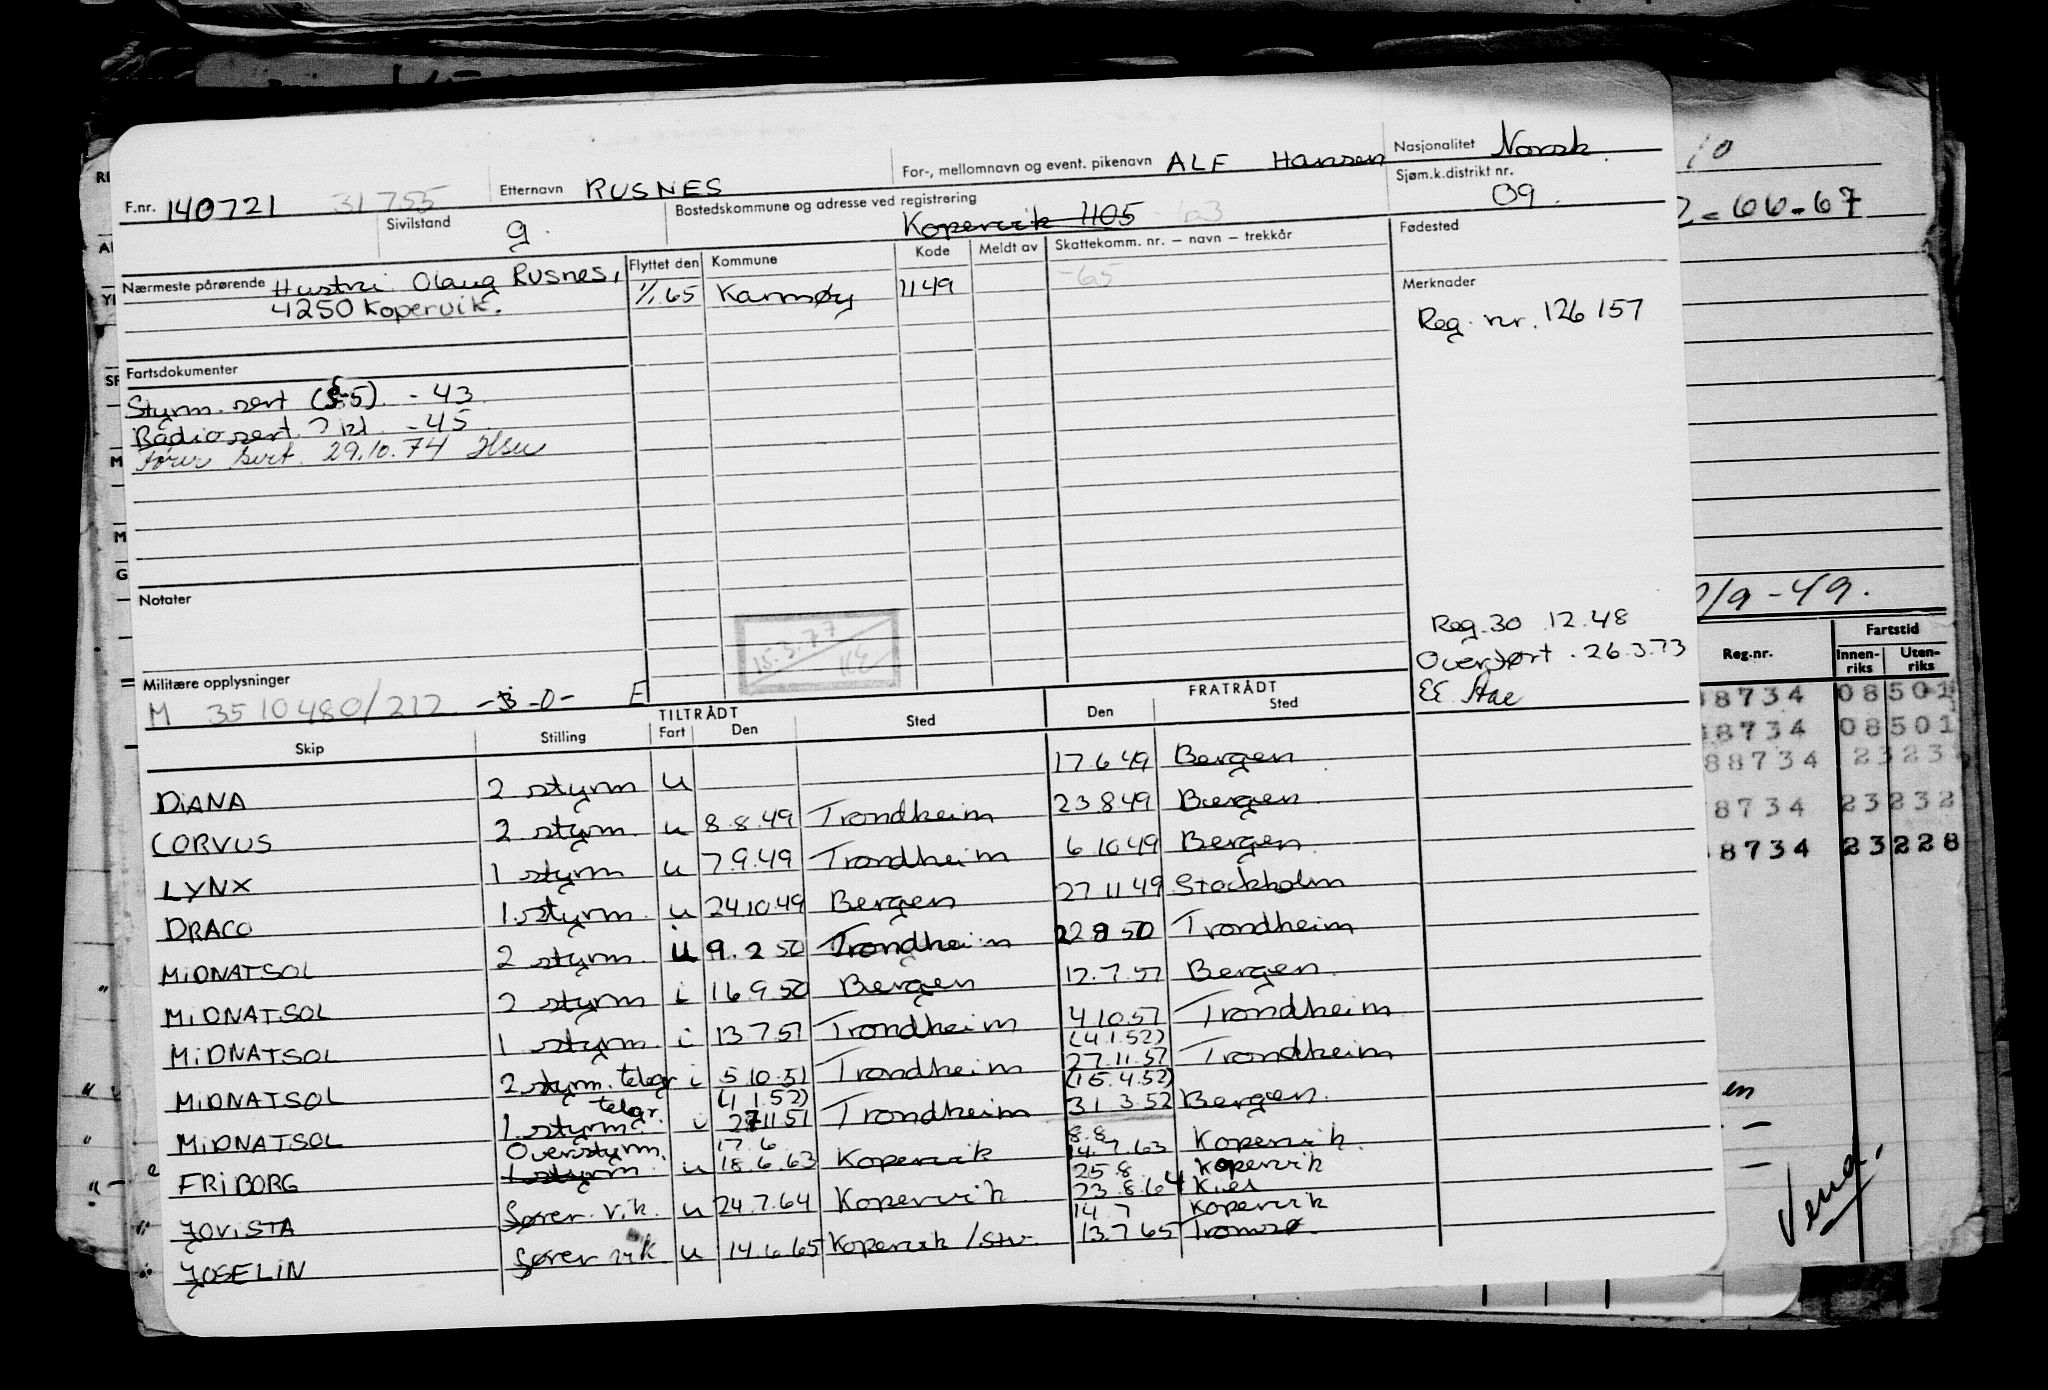 F.nr. 140721 31755 Etternavn RUSNES For-, mellomnavn og event. pikenavn ALF Hansen Nasjonalitet Norsk.
Sivilstand g. Bostedskommune og adresse ved registrering Kopervik 1105 Sjøm.k.distrikt nr. 09.
Nærmeste pårørende Hustru Olaug Rusnes,
4250 Kopervik.
Flyttet den Kommune Kode Meldt av Skattekomm. nr. – navn – trekkår
1/1.65 Karmøy 1149 -65
Fødested
Merknader
Reg. nr. 126157
Fartsdokumenter
Styrm. sert (S-5) - 43
Radiosert. 2 kl - 45
Fører sert. 29.10.74
Notater
15.3.77
Reg. 30 12.48
Overført. 26.3.73
Militære opplysninger
M 3510480/212 E
TILTRÅDT FRATRÅDT
Skip Stilling Fart Den Sted Den Sted
DIANA 2 styrm u 17.6.49 Bergen
CORVUS 2 styrm. u 8.8.49 Trondheim 23.8.49 Bergen
LYNX 1 styrm u 7.9.49 Trondheim 6.10.49 Bergen
DRACO 1.styrm. u 24.10.49 Bergen 27.11.49 Stockholm
MIDNATSOL 2 styrm. u 9.2.50 Trondheim 22 8 50 Trondheim
MIDNATSOL 2 styrm i 16.9.50 Bergen 12.7.51 Bergen.
MIDNATSOL 1 styrm. i 13.7.51 Trondheim 4.10.51 Trondheim
(4.1.52)
MIDNATSOL 2 styrm. telgr i 5.10.51 Trondheim 27.11.51 Trondheim
telgr. (15.4.52)
MIDNATSOL 1.styrm. i 27.11.51 Trondheim 31.3.52 Bergen.
Overstyrm. 17.6 8.8
FRIBORG 1 styrm. u 18.6.63 Kopervik 14.7.63 Kopervik.
25.8 Kopervik
JOVISTA fører. vik. u 24.7.64 Kopervik 23.8.64 Kiel
14.7 Kopervik
JOSELIN fører vik u 14.6.65 Kopervik /Stv. 13.7.65 Tromsø.
10
66-67
/9-49.
Reg.nr. Fartstid
Innen-
riks Uten-
riks
8734 08 501
8734 08 501
88734 23 23
8734 23 232
8734 23 228
en